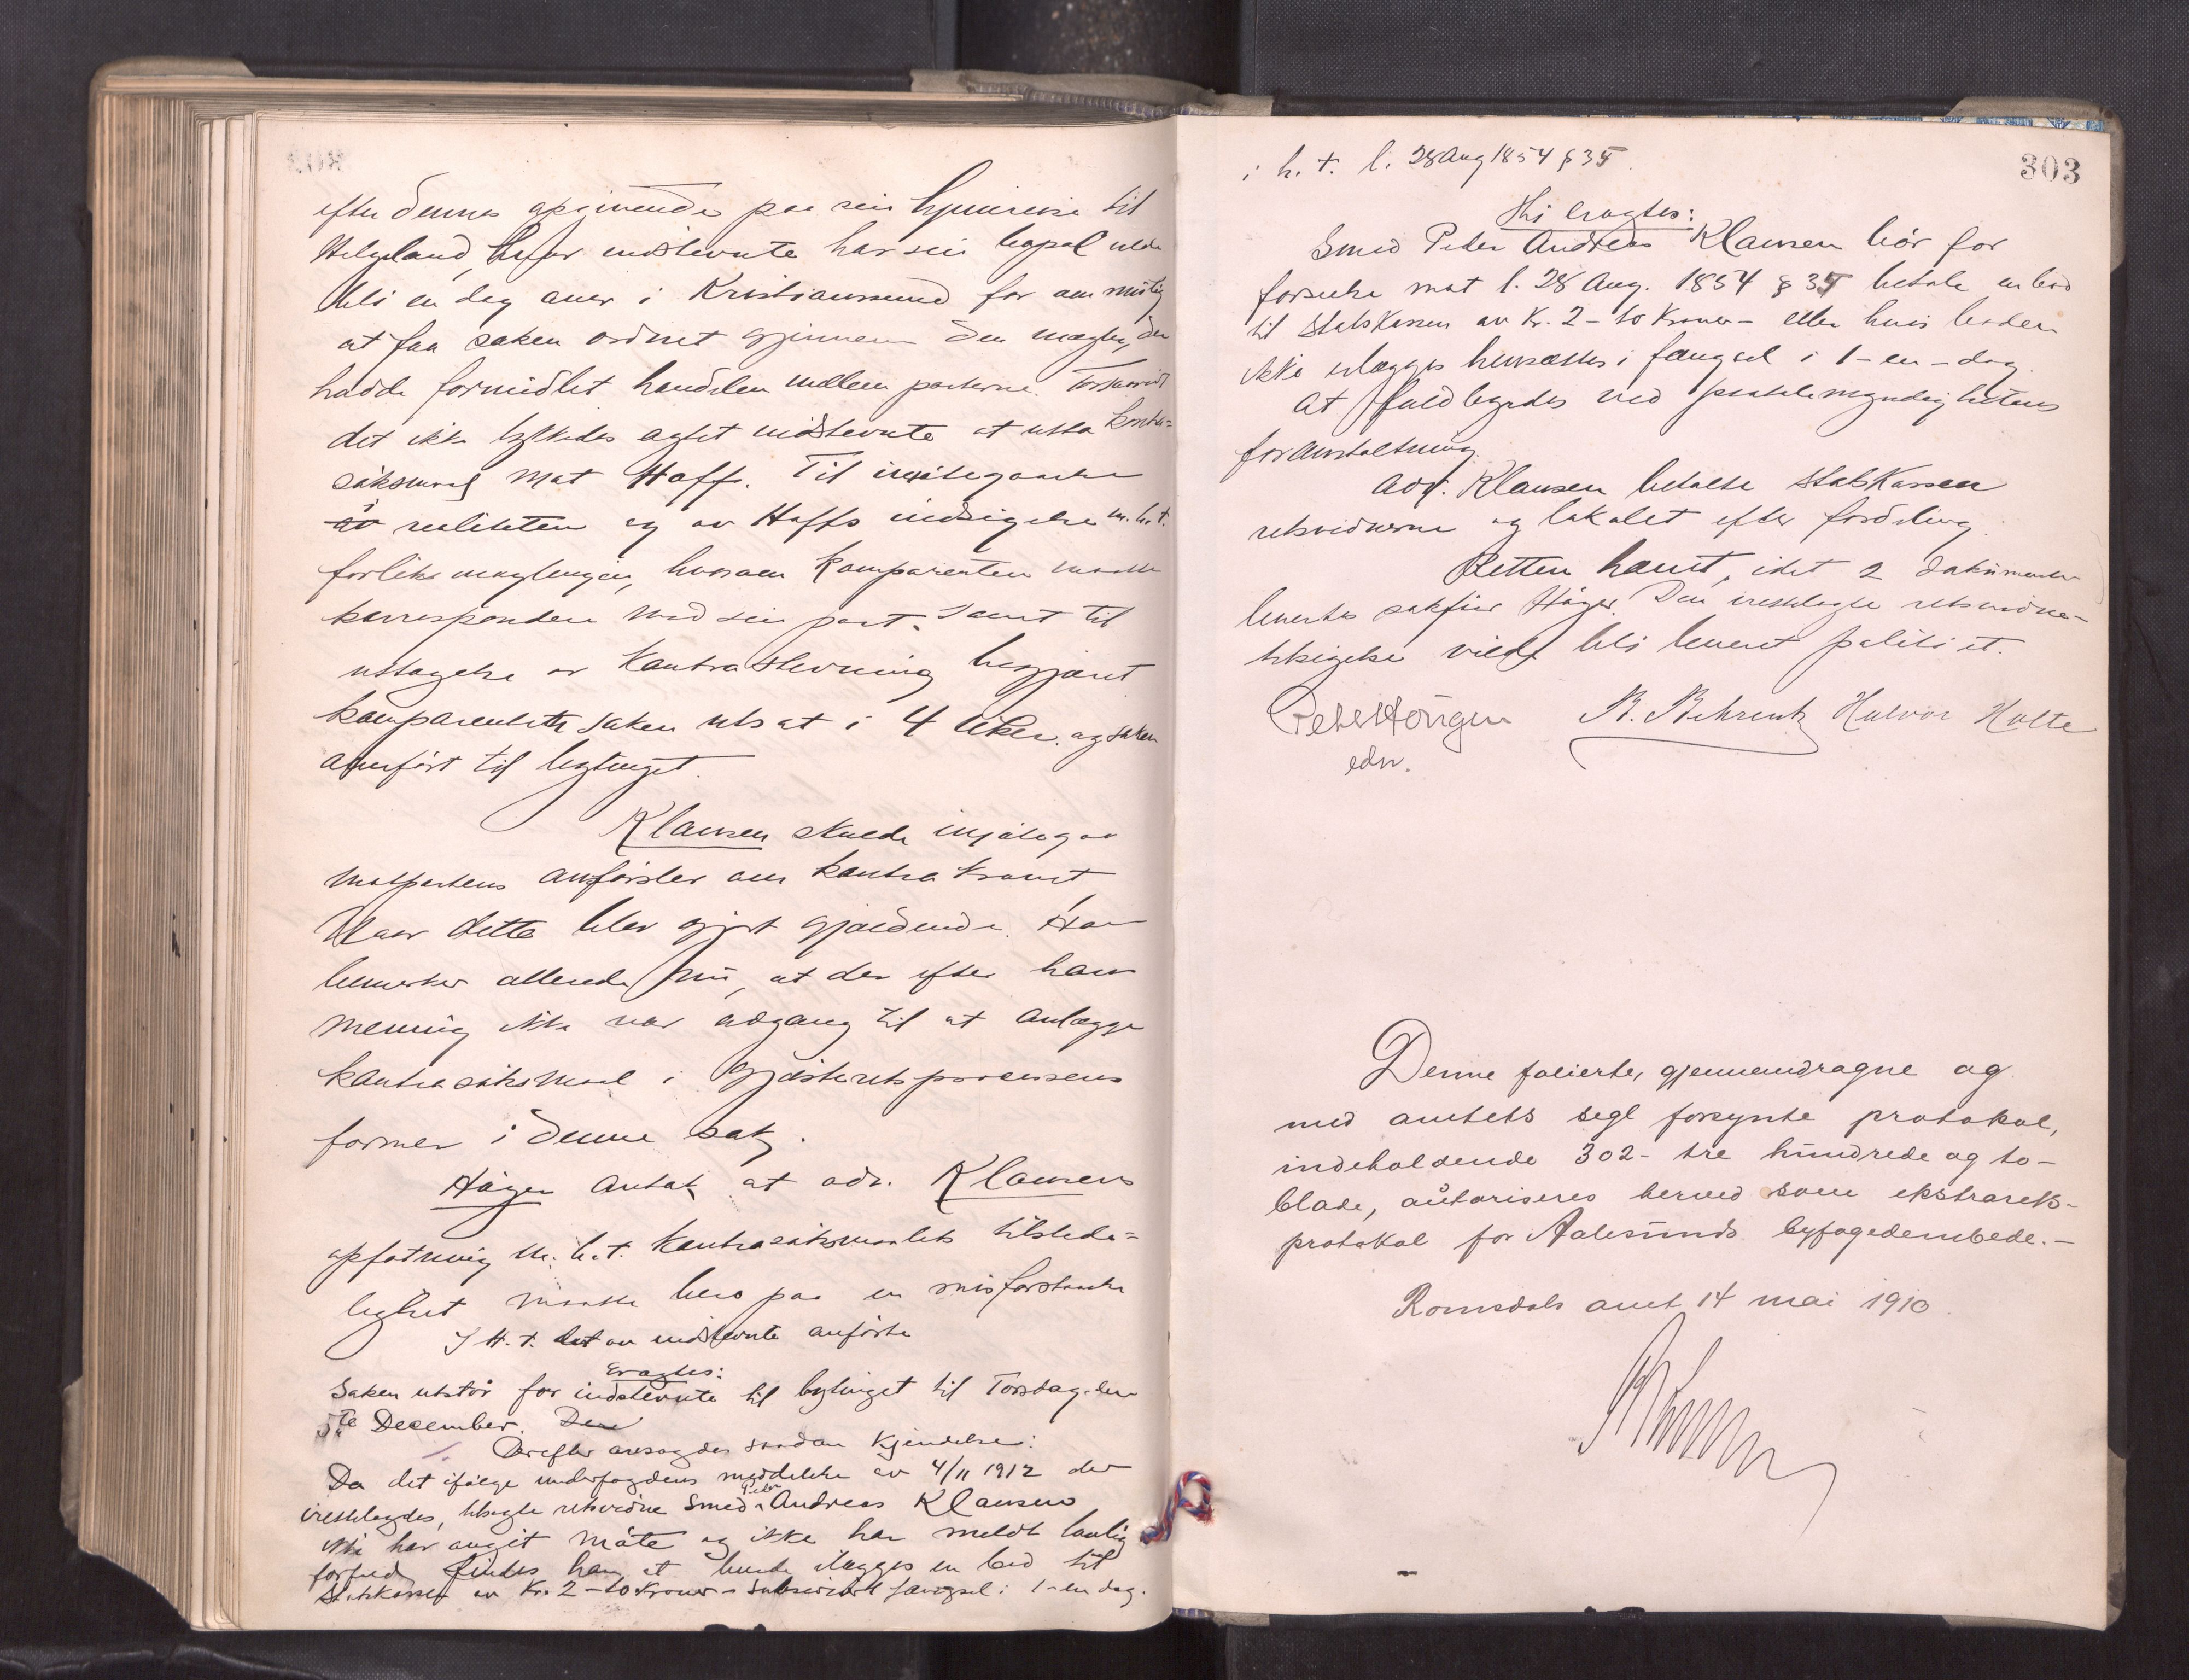 efter dennes opgivende paa sin hjemreise til
Helgeland, hvor indstevnte har sin bopæl vilde
bli en dag over i Kristiansund for om mulig
at faa saken ordnet gjennem den mægler, der
hadde formidlet handelen mellem parterne. Forsaavidt
det ikke lykkedes agtet indstevnte at utta kontra-
søksmaal mot Hoff. Til imøtegaaelse
i realiteten og av Hoffs indsigelse m.h.t.
forliksmæglingen, hvorom komparenten maatte
korrespondere med sin part, samt til
uttagelse av kontrastevning begjæret
komparenten saken utsat i 4 uker og saken
overført til bytinget.
Klausen skulde imøtegaa
motpartens anførsler om kontrakravet
naar dette blev gjort gjældende. Han
bemerker allerede nu, at der efter hans
mening ikke var adgang til at anlægge
kontrasøksmaal i gjesteretsprocessens
former i denne sak.
Høgen antok at adv. Klausens
opfatning m.h.t. kontrasøksmaalets tilstede-
lighet maatte bero paa en misforstaaelse
I H. t. det av indstevnte anførte
Eragtes:
Saken utstår for indstevnte til bytinget til Torsdag den
5te December.
Derefter avsagdes saadan Kjendelse:
Da det ifølge underfogdens meddelelse av 4/11 1912 der
irettelagdes, tilsagte retsvidne Smed Peter Andreas Klausen
ikke har angit møte og ikke har meldt lovlig
forfald findes han at burde ilægges en bod til
Statskassen av Kr. 2 - to kroner - subsidiært fængsel i 1 - en dag.
303
i h. t. l. 28 Aug 1854 § 35.
Thi eragtes:
Smed Peter Andreas Klausen bør for
forseelse mot l. 28 Aug. 1854 § 35 betale en bod
til Statskassen av Kr. 2 - to Kroner - eller hvis boden
ikke erlægges hensættes i fængsel i 1 - en - dag.
At fuldbyrdes ved paatalemyndighetens
foranstaltning.
Adv. Klausen betalte Statskassen
retsvidnerne og lokalet efter fordeling.
Retten hævet, idet 2 dokumenter
levertes sakfører Høgen. Den irettelagte retsvidne-
tilsigelse vilde bli leveret politiet.
Peter Høngen B. Behrentz Halvor Holte
edv.
Denne folierte, gjennemdragne og
med amtets segl forsynte protokol,
indeholdende 302 - tre hundrede og to -
blade, autoriseres herved som ekstrarets-
protokol for Aalesunds byfogedembede. -
Romsdals amt 14 mai 1910.